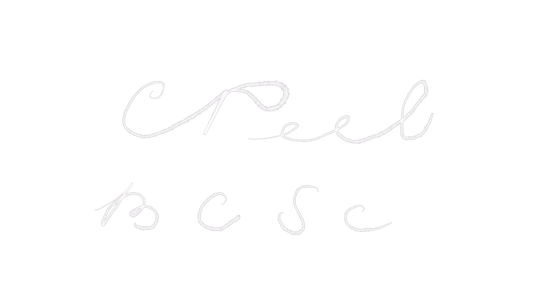 C Peel
B C S c